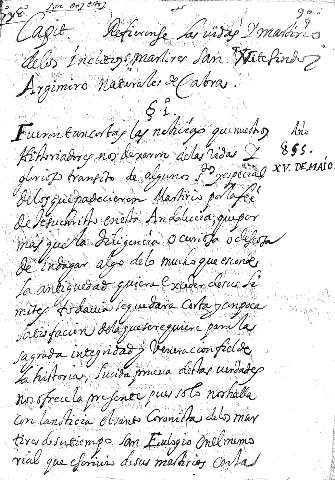 Refierense las vidas y martirio
de los Ínclitos martires San Witesindo y
Argimiro Naturalles de Cabra.
§ 1
Fueron tan cortas las noticias que nuestros
Historiadores nos dexaron de las vidas y
glorioso transito de algunos Stos y especial
de los que padecieron Martirio por la feé
de Jesuchristo en esta Andalucia, que por
mas que la diligencia o curiosa o
de indagar algo de lo mucho que esconde
la antiguedad quiera exeder de sus li
mites todavia se quedara corta y en poca
satisfacion de la que se requiere para la
sagrada integridad y Veneracion fiel de
la historia, lucida prueva de estas verdades
nos ofrece la presente pues solo nos halla
con la noticia el santo Cronista de los mar
tires de su tiempo San Eulogio en el memo
rial que escrivio de sus martirios cortas
Año
855.
XV. DE MAIO.